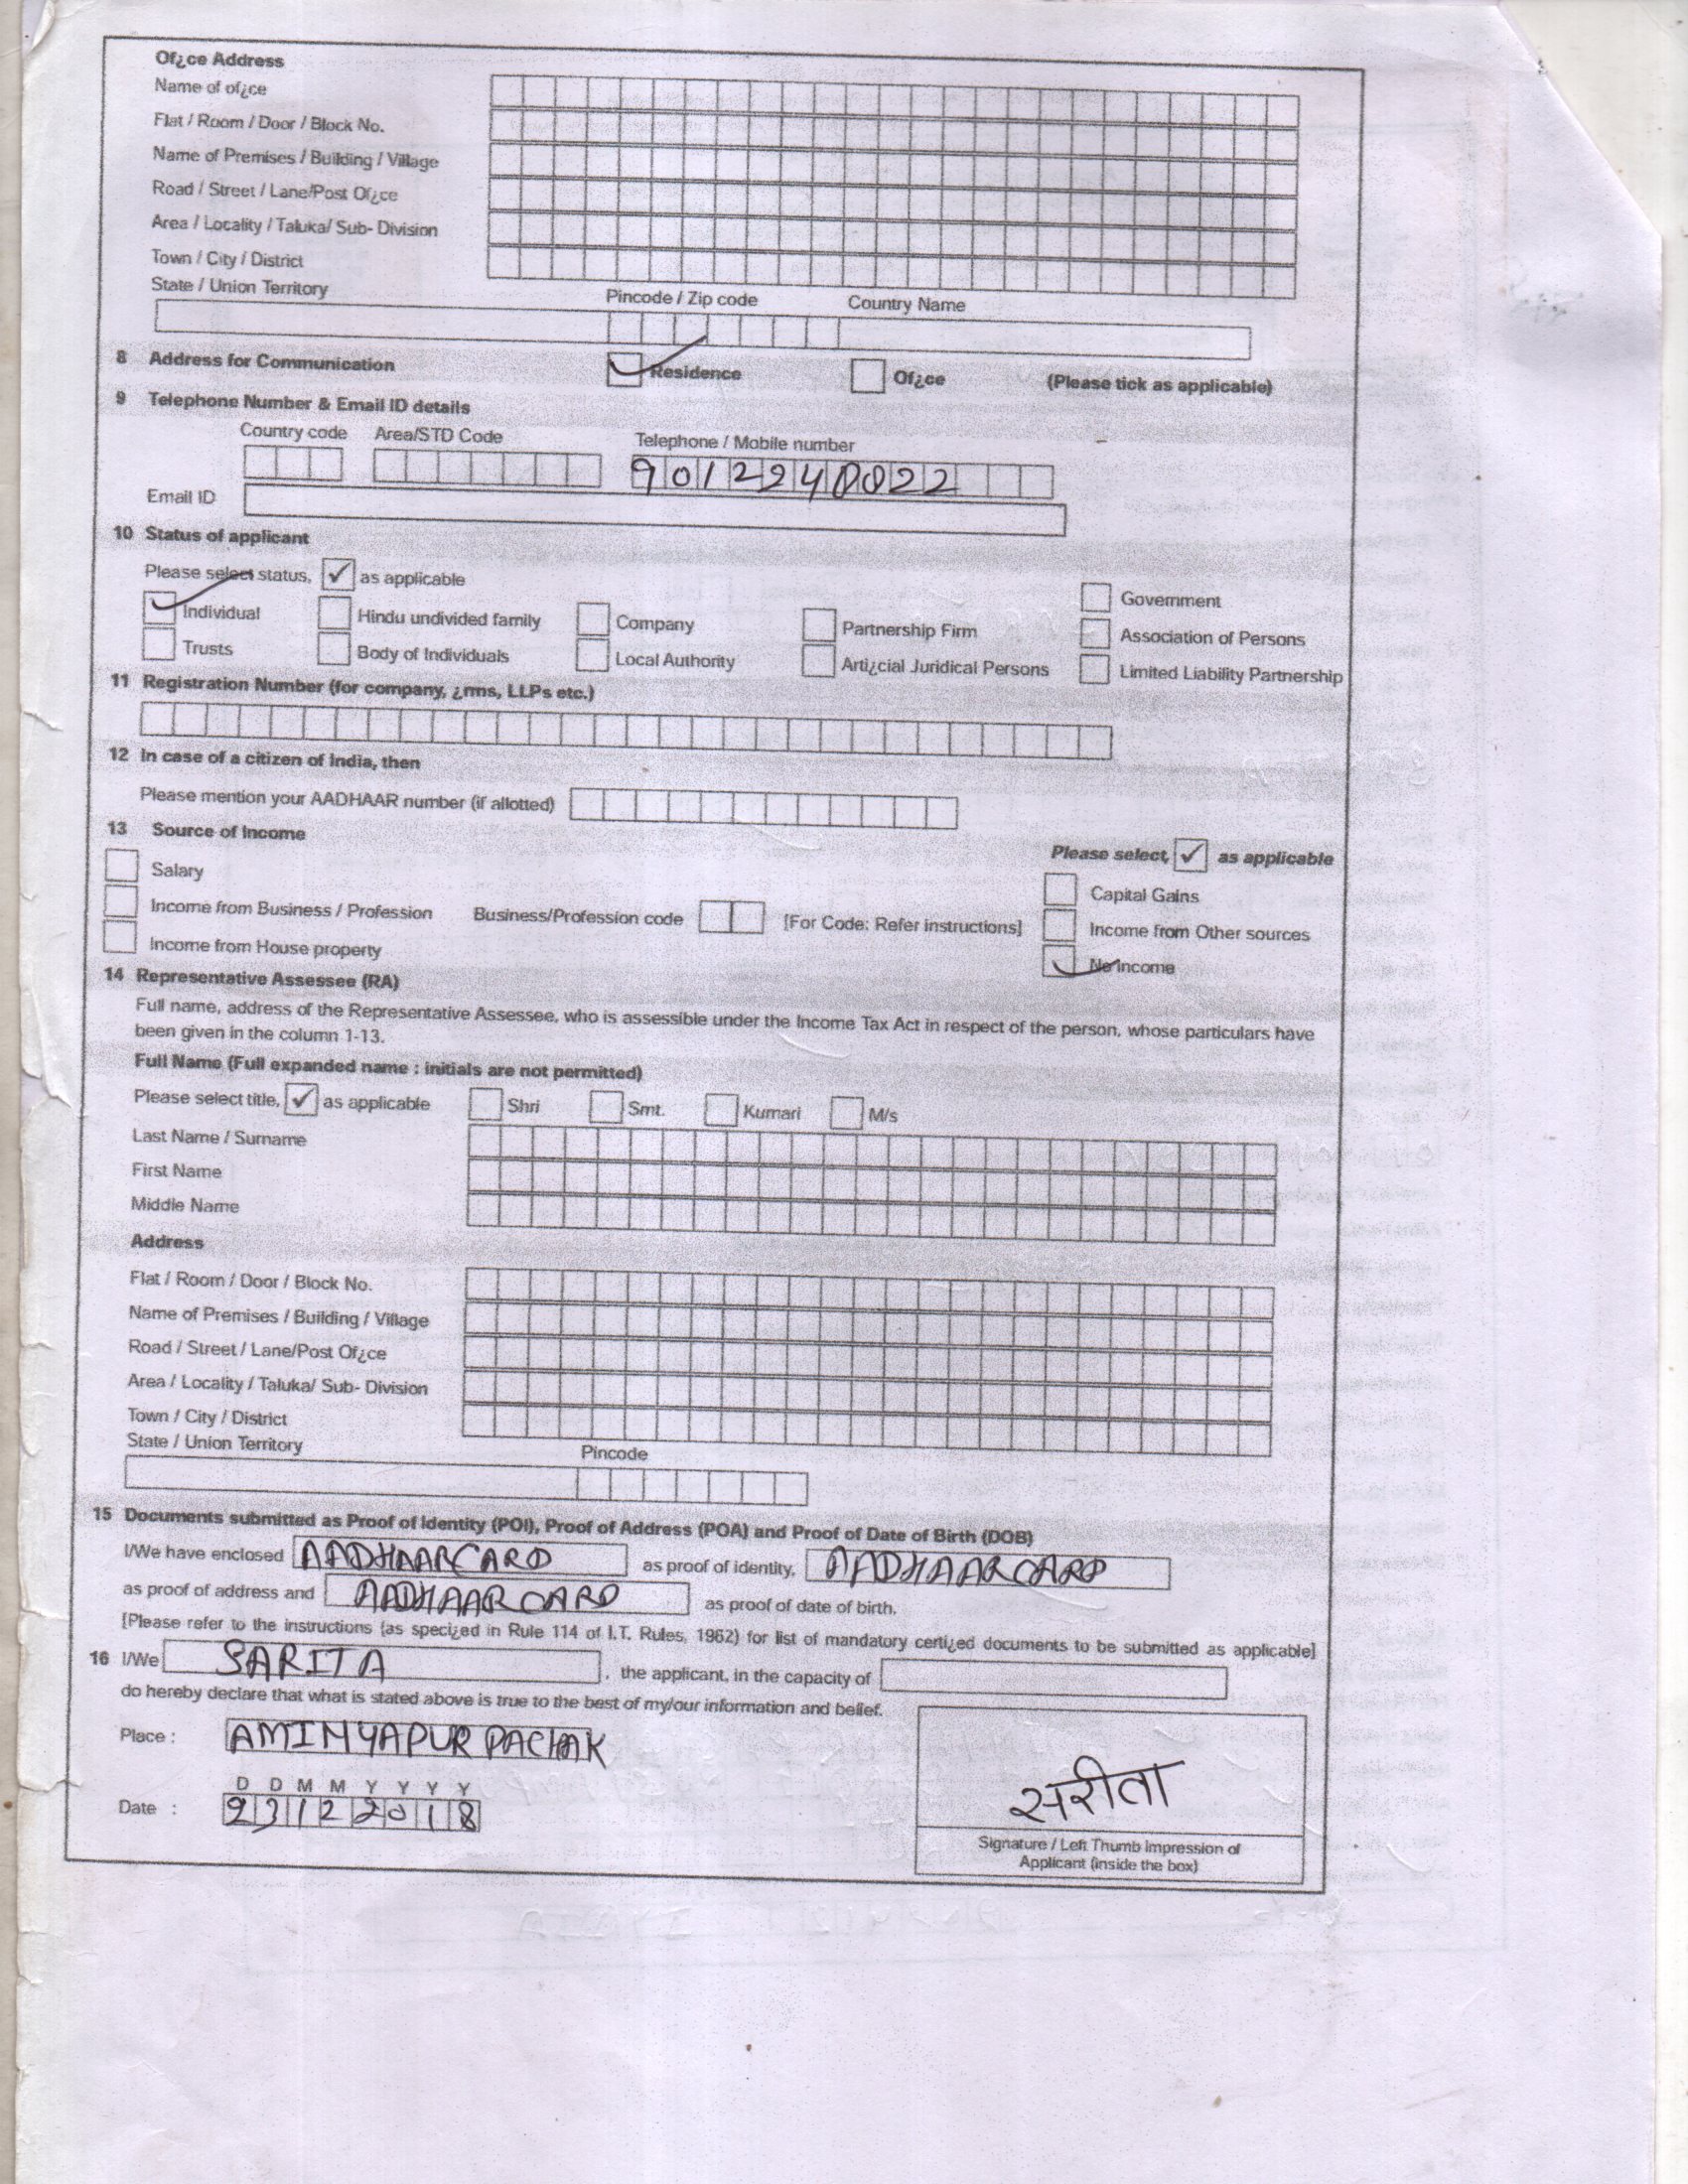 Of¿ce Address
Name of of¿ce
Flat / Room / Door / Block No.
Name of Premises / Building / Village
Road / Street / Lane/Post Of¿ce
Area / Locality / Taluka/ Sub- Division
Town / City / District
State / Union Territory Pincode / Zip code Country Name
8 Address for Communication Residence Of¿ce (Please tick as applicable)
9 Telephone Number & Email ID details
Country code Area/STD Code Telephone / Mobile number
9012240022
Email ID
10 Status of applicant
Please select status, ✓ as applicable
Individual Hindu undivided family Company Partnership Firm Government
Trusts Body of Individuals Local Authority Arti¿cial Juridical Persons Association of Persons
Limited Liability Partnership
11 Registration Number (for company, ¿rms, LLPs etc.)
12 In case of a citizen of India, then
Please mention your AADHAAR number (if allotted)
13 Source of Income Please select, ✓ as applicable
Salary Capital Gains
Income from Business / Profession Business/Profession code [For Code: Refer instructions] Income from Other sources
Income from House property No Income
14 Representative Assessee (RA)
Full name, address of the Representative Assessee, who is assessible under the Income Tax Act in respect of the person, whose particulars have
been given in the column 1-13.
Full Name (Full expanded name : initials are not permitted)
Please select title, ✓ as applicable Shri Smt. Kumari M/s
Last Name / Surname
First Name
Middle Name
Address
Flat / Room / Door / Block No.
Name of Premises / Building / Village
Road / Street / Lane/Post Of¿ce
Area / Locality / Taluka/ Sub- Division
Town / City / District
State / Union Territory Pincode
15 Documents submitted as Proof of Identity (POI), Proof of Address (POA) and Proof of Date of Birth (DOB)
I/We have enclosed AADHAARCARD as proof of identity, AADHAARCARD
as proof of address and AADHAARCARD as proof of date of birth.
[Please refer to the instructions (as speci¿ed in Rule 114 of I.T. Rules, 1962) for list of mandatory certi¿ed documents to be submitted as applicable]
16 I/We SARITA , the applicant, in the capacity of
do hereby declare that what is stated above is true to the best of my/our information and belief.
Place : PACHAK
D D M M Y Y Y Y
Date : 23122018
सरीता
Signature / Left Thumb Impression of
Applicant (inside the box)